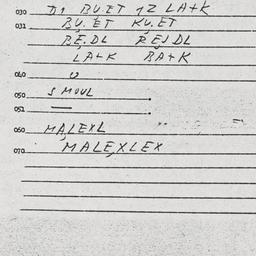 030 D1 BU.ET 1Z LA+K
031 BU.ET KU.ET
BE.DL BEJDL
LA+K BA+K
040 U
050 S MOUL
051 —
060 MA,LEXL
070 MALE,XLEX